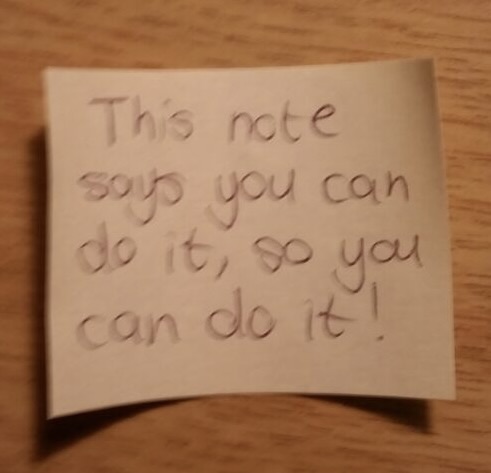 This note
says you can
do it, so you
can do it!